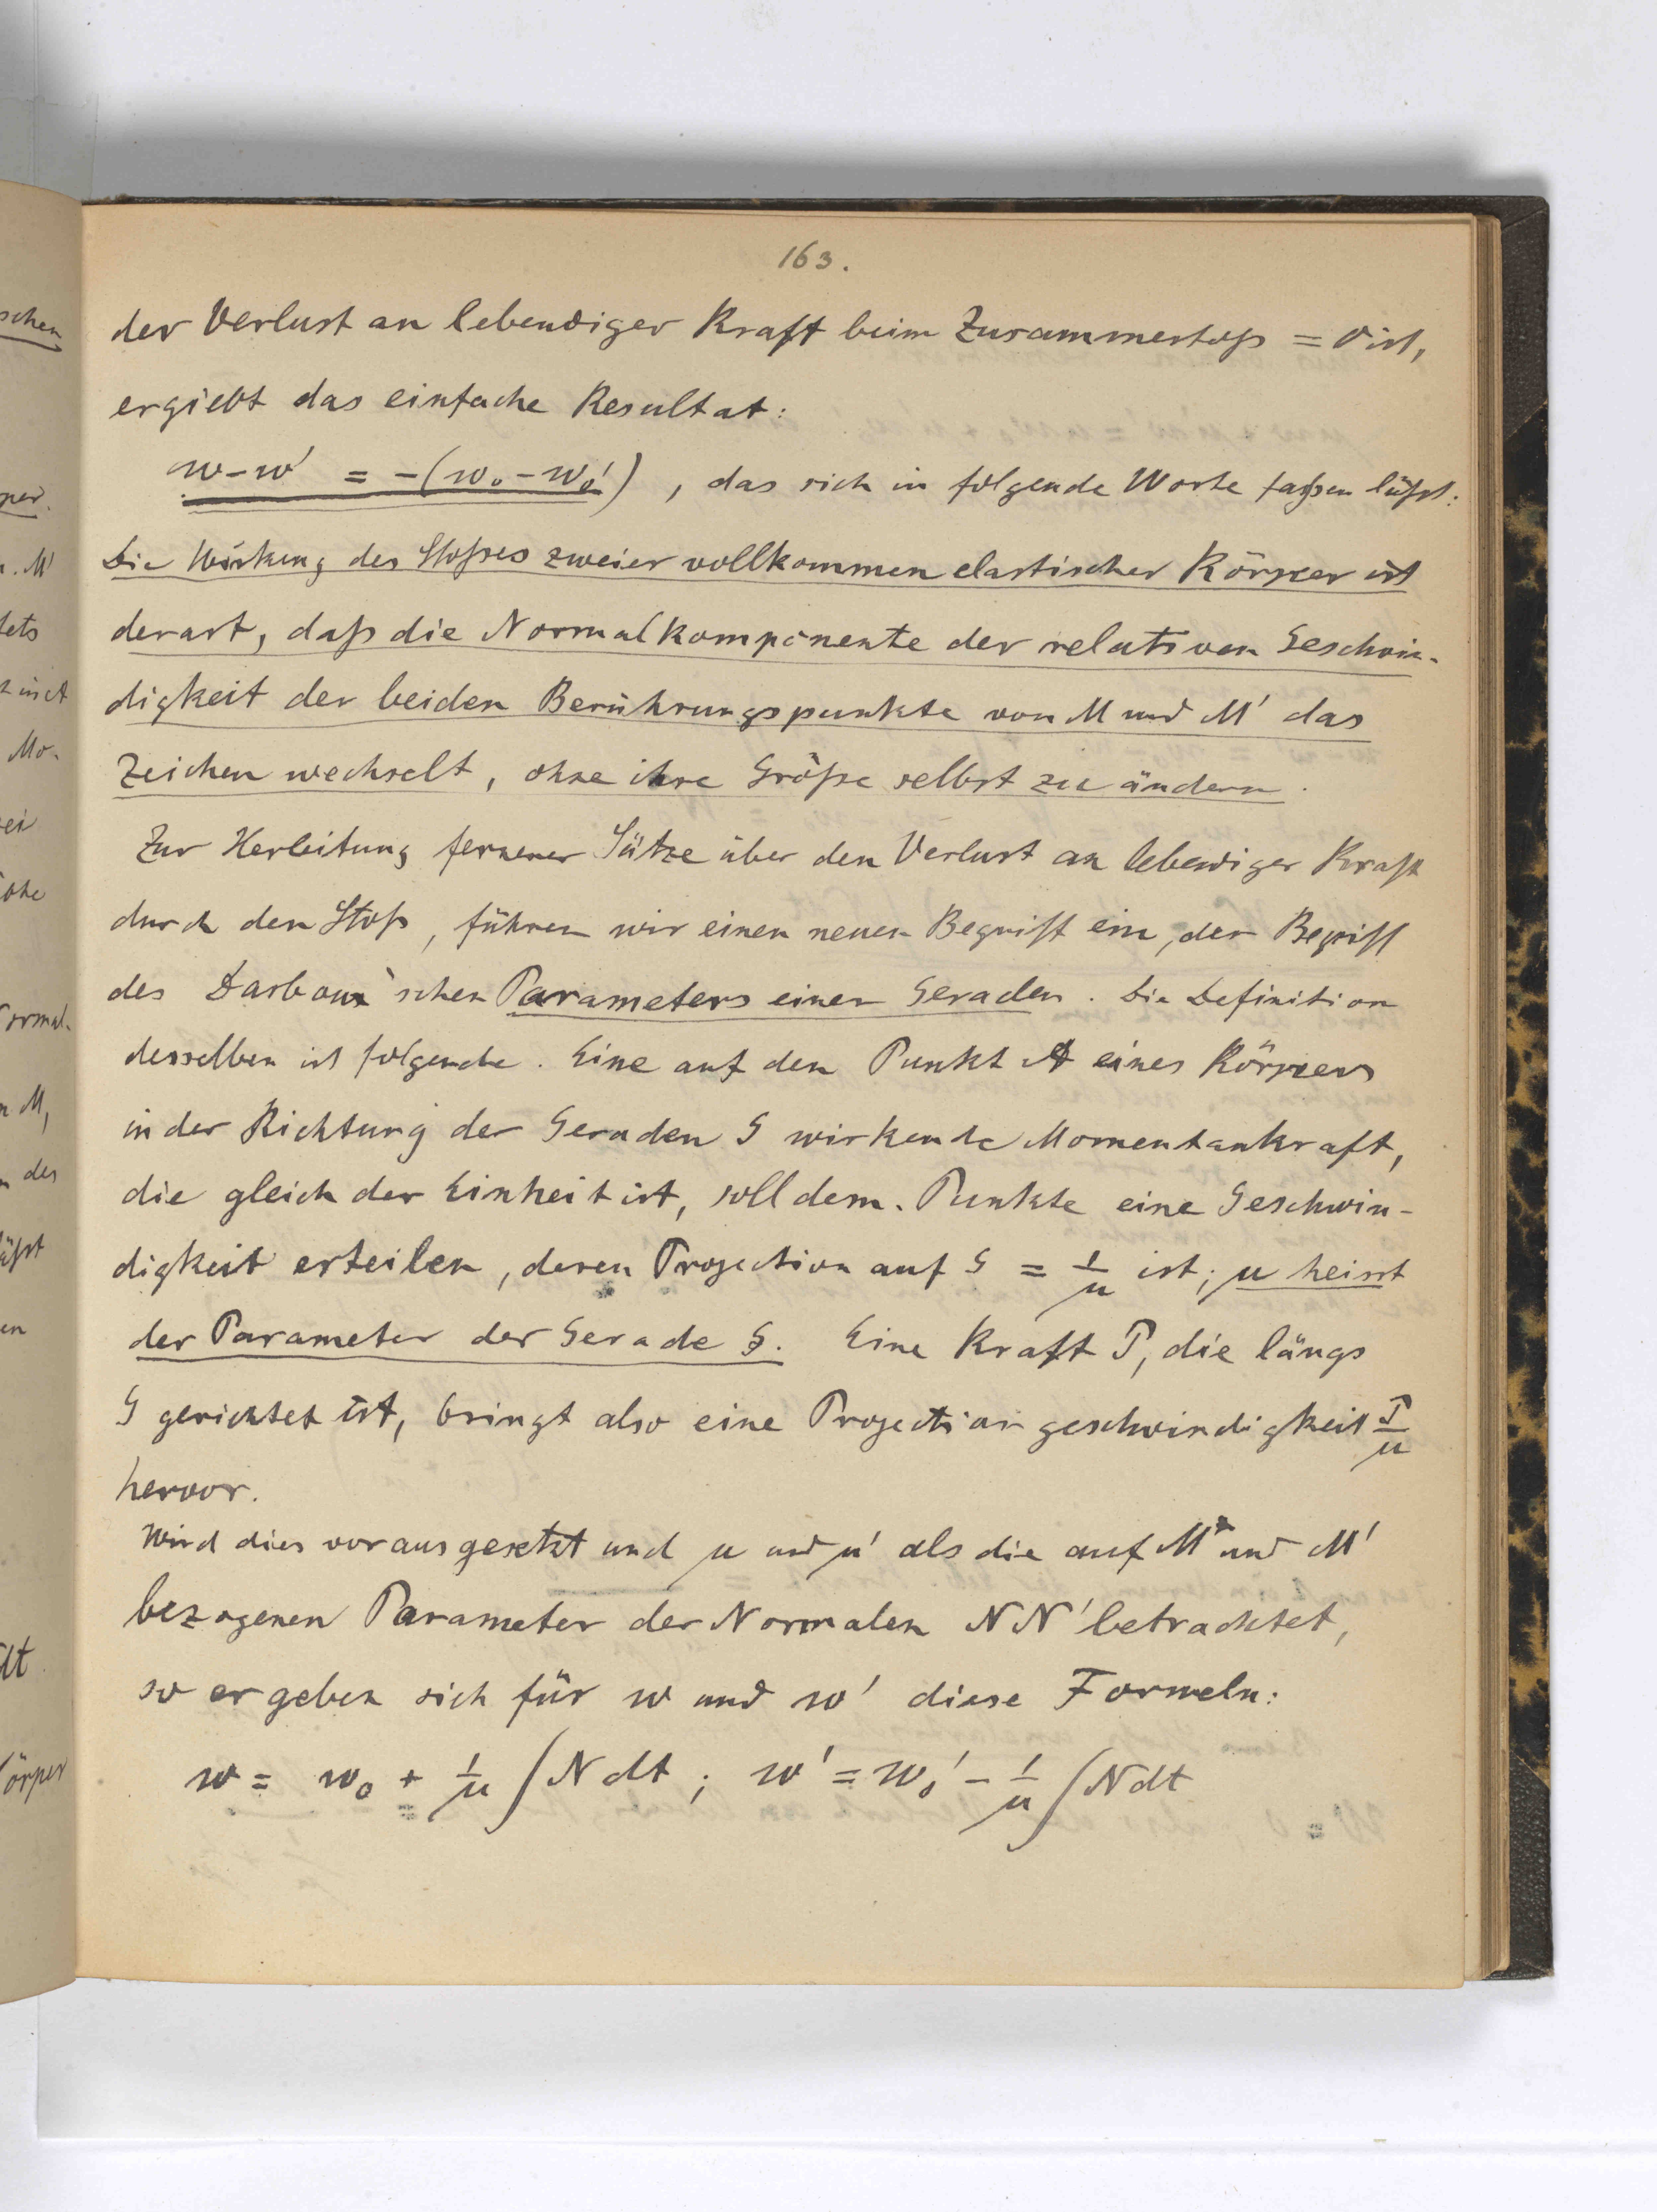 163.
der Verlust an lebendiger Kraft beim Zusammenstoß = 0 ist,
ergiebt das einfache Resultat:
w-w' = -(w₀-w₀') , das sich in folgende Worte faßen läßt:
Die Wirkung des Stoßes zweier vollkommen elastischer Körper ist
derart, daß die Normalkomponente der relativen Geschwin-
digkeit der beiden Berührungspunkte von M und M' das
Zeichen wechselt, ohne ihre Größe selbst zu ändern.
Zur Herleitung fernerer Sätze über den Verlust an lebendiger Kraft
durch den Stoß, führen wir einen neuen Begriff ein, den Begriff
des Darboux'schen Parameters einer Geraden. Die Definition
desselben ist folgende. Eine auf den Punkt A eines Körpers
in der Richtung der Geraden G wirkende Momentankraft,
die gleich der Einheit ist, soll dem. Punkte eine Geschwin-
digkeit erteilen, deren Projection auf G = 1/μ ist; μ heisst
der Parameter der Gerade G. Eine Kraft P, die längs
G gerichtet ist, bringt also eine Projectiongeschwindigkeit P/μ
hervor.
Wird dies vorausgesetzt und μ und μ' als die auf M und M'
bezogenen Parameter der Normalen NN' betrachtet,
so ergeben sich für w und w' diese Formeln:
w = w₀ + 1/μ ∫N dt ; w' = w₀' - 1/μ ∫N dt